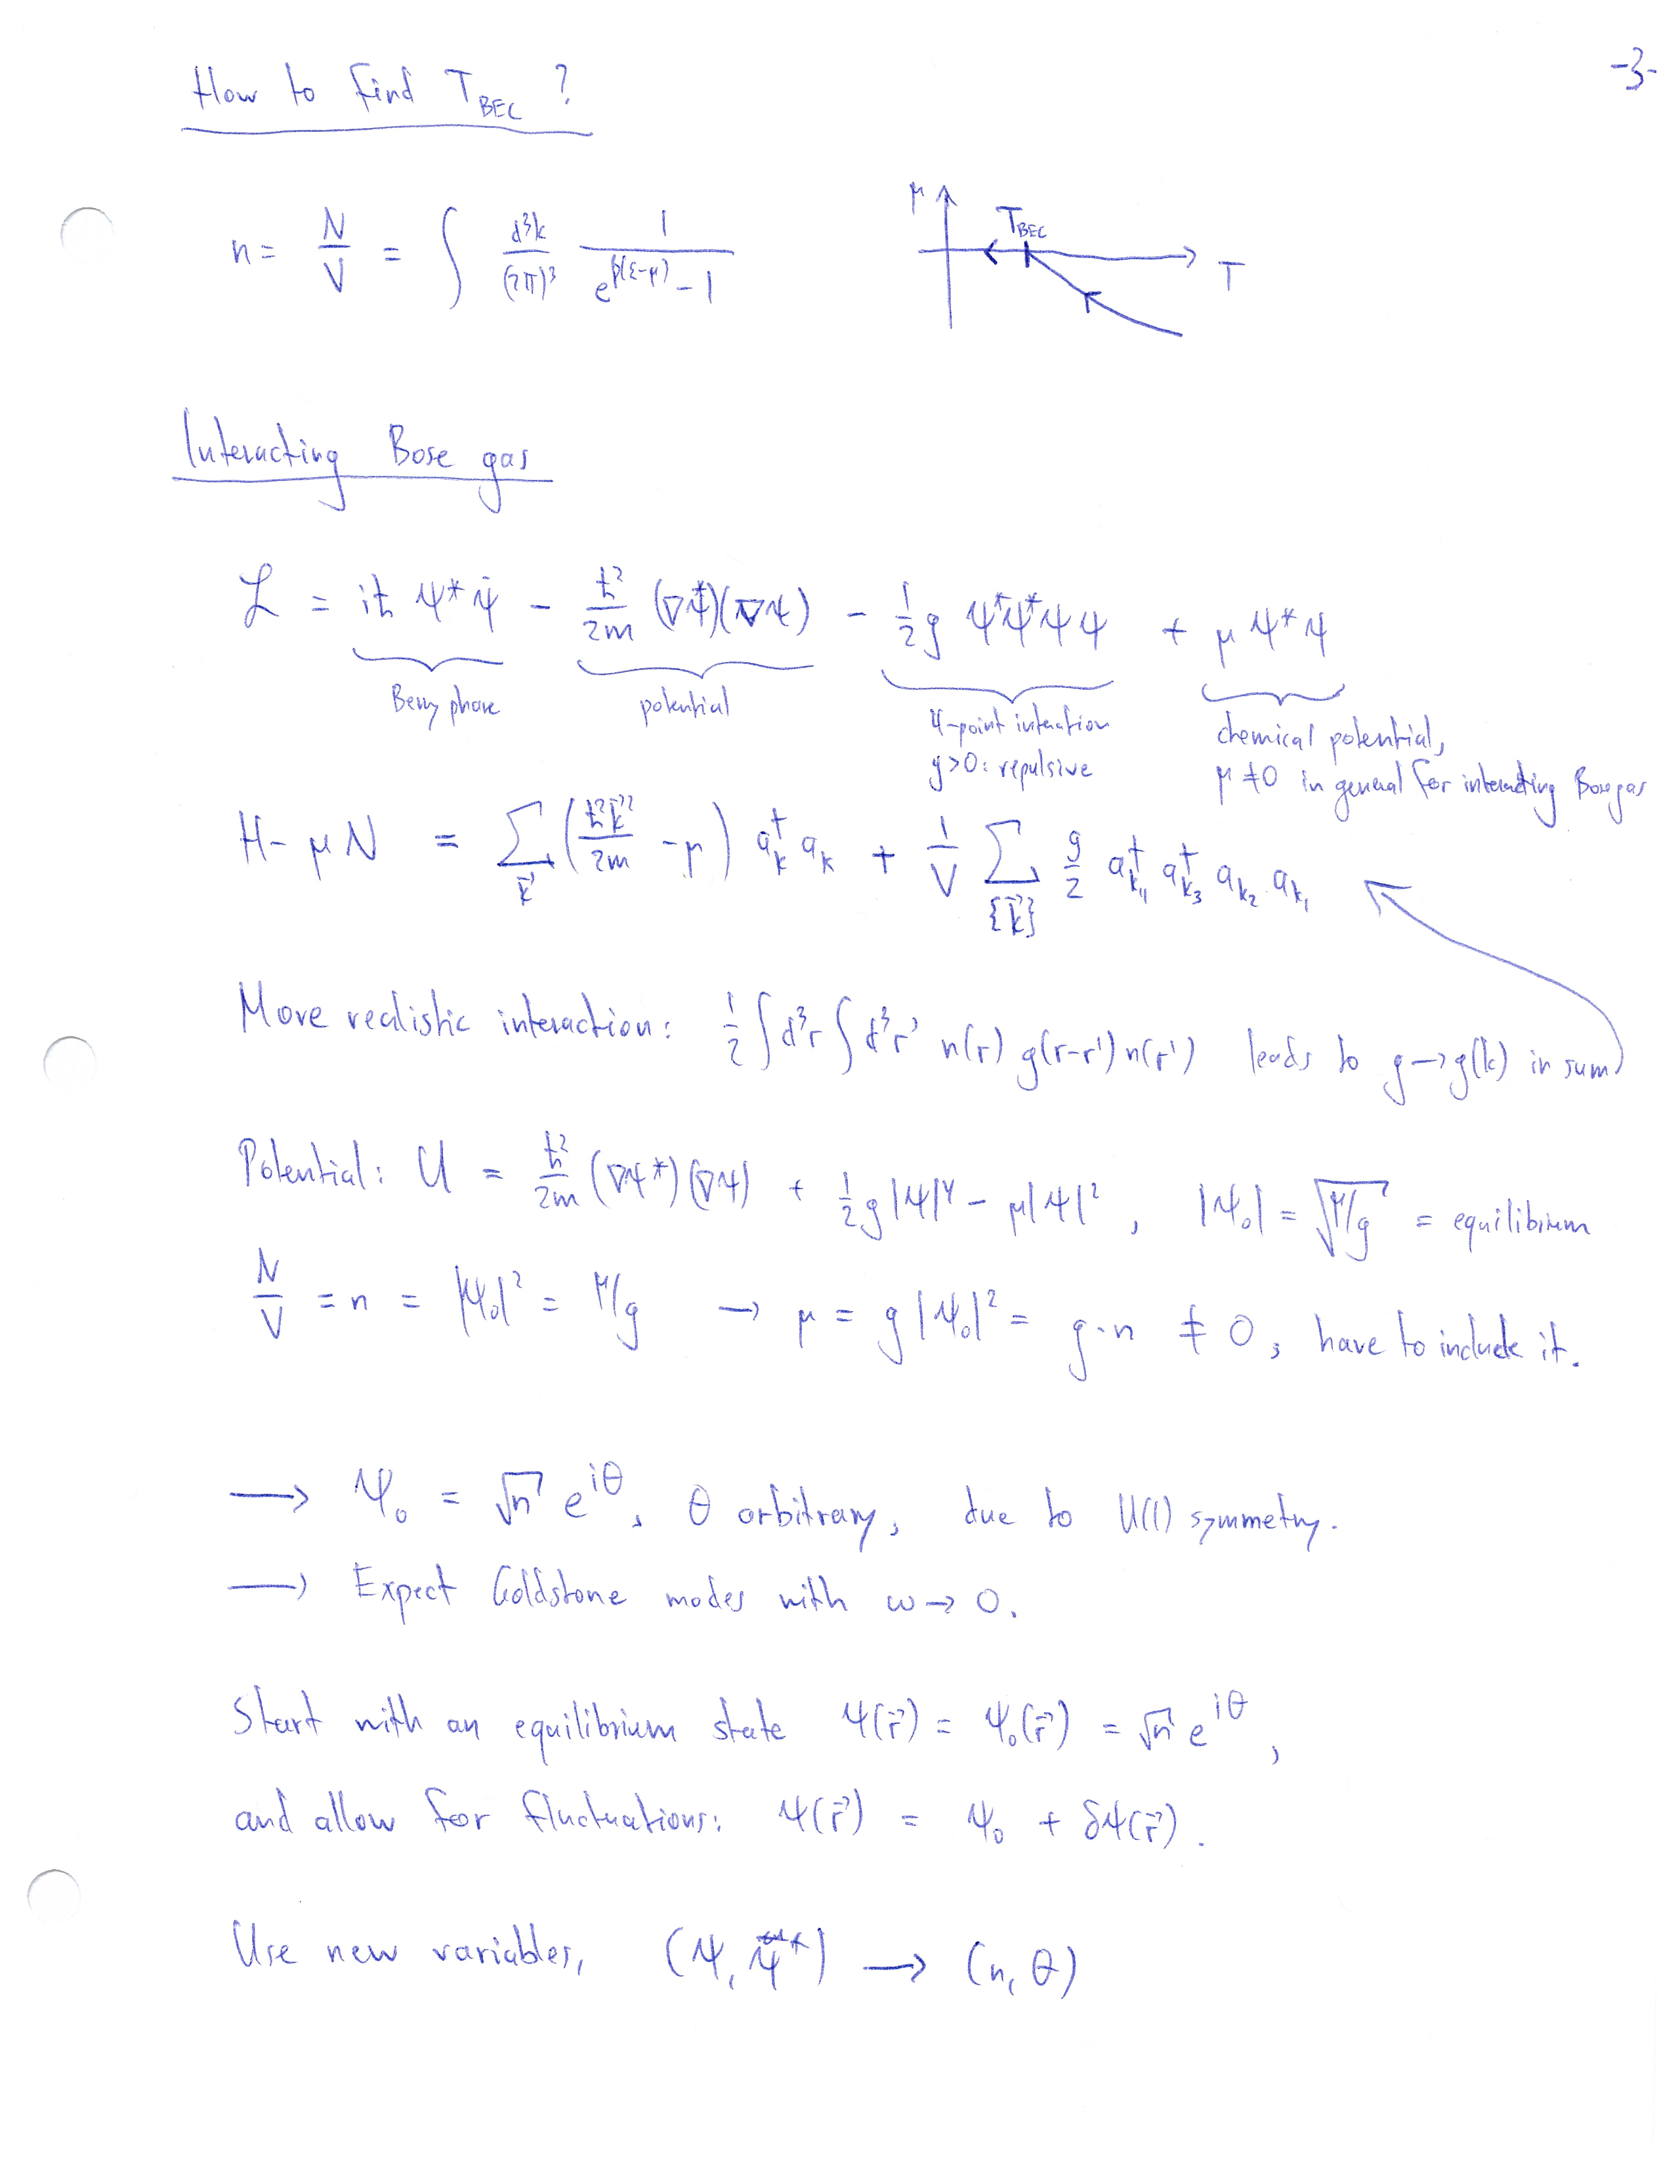 -3-
How to find T_BEC ?
n = N/V = ∫ d³k/(2π)³ 1/(e^{β(ε-μ)} - 1)
μ T_BEC T
Interacting Bose gas
ℒ = iħ ψ* ψ̇ - ħ²/2m (∇ψ*)(∇ψ) - 1/2 g ψ*ψ*ψψ + μ ψ*ψ
Berry phase potential 4-point interaction chemical potential,
g>0: repulsive μ ≠ 0 in general for interacting Bose gas
H - μN = Σ_{k⃗} (ħ²k⃗²/2m - μ) a†_k a_k + 1/V Σ_{{k⃗}} g/2 a†_{k₄} a†_{k₃} a_{k₂} a_{k₁}
More realistic interaction: 1/2 ∫d³r ∫d³r' n(r) g(r-r') n(r') leads to g→g(k) in sum
Potential: U = ħ²/2m (∇ψ*)(∇ψ) + 1/2 g|ψ|⁴ - μ|ψ|², |ψ₀| = √(μ/g) = equilibrium
N/V = n = |ψ₀|² = μ/g → μ = g|ψ₀|² = g·n ≠ 0, have to include it.
→ ψ₀ = √n e^{iθ}, θ arbitrary, due to U(1) symmetry.
→ Expect Goldstone modes with ω→0.
Start with an equilibrium state ψ(r⃗) = ψ₀(r⃗) = √n e^{iθ},
and allow for fluctuations: ψ(r⃗) = ψ₀ + δψ(r⃗).
Use new variables, (ψ, ψ*) → (n, θ)